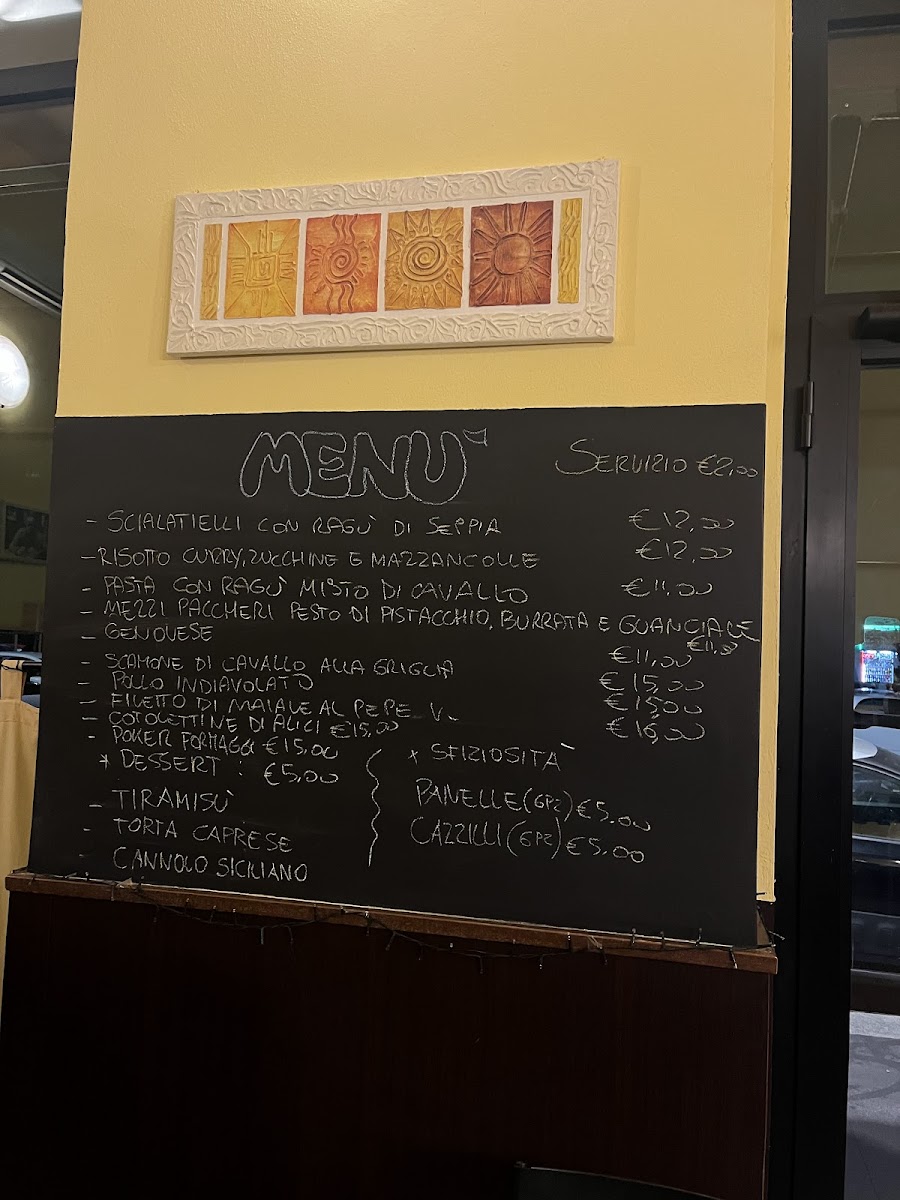 MENU'
SERVIZIO €2,00
- SCIALATIELLI CON RAGU' DI SEPPIA €12,00
- RISOTTO CURRY, ZUCCHINE E MAZZANCOLLE €12,00
- PASTA CON RAGU' MISTO DI CAVALLO €11,00
- MEZZI PACCHERI PESTO DI PISTACCHIO, BURRATA E GUANCIALE €11,00
- GENOVESE €11,00
- SCAMONE DI CAVALLO ALLA GRIGLIA €15,00
- POLLO INDIAVOLATO €15,00
- FILETTO DI MAIALE AL PEPE V. €16,00
- COTOLETTINE DI ALICI €15,00
- POKER FORMAGGI €15,00
* DESSERT : €5,00
- TIRAMISU'
- TORTA CAPRESE
- CANNOLO SICILIANO
* SFIZIOSITA'
PANELLE (6PZ) €5.00
CAZZILLI (6PZ) €5,00